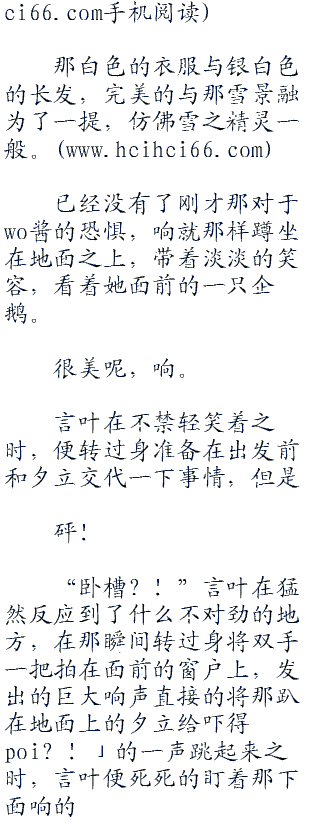 ci66.com手机阅读)
那白色的衣服与银白色
的长发，完美的与那雪景融
为了一提，仿佛雪之精灵一
般。(www.hcihci66.com)
已经没有了刚才那对于
wo酱的恐惧，响就那样蹲坐
在地面之上，带着淡淡的笑
容，看着她面前的一只企
鹅。
很美呢，响。
言叶在不禁轻笑着之
时，便转过身准备在出发前
和夕立交代一下事情，但是
砰！
“卧槽？！”言叶在猛
然反应到了什么不对劲的地
方，在那瞬间转过身将双手
一把拍在面前的窗户上，发
出的巨大响声直接的将那趴
在地面上的夕立给吓得
poi？！」的一声跳起来之
时，言叶便死死的盯着那下
面响的